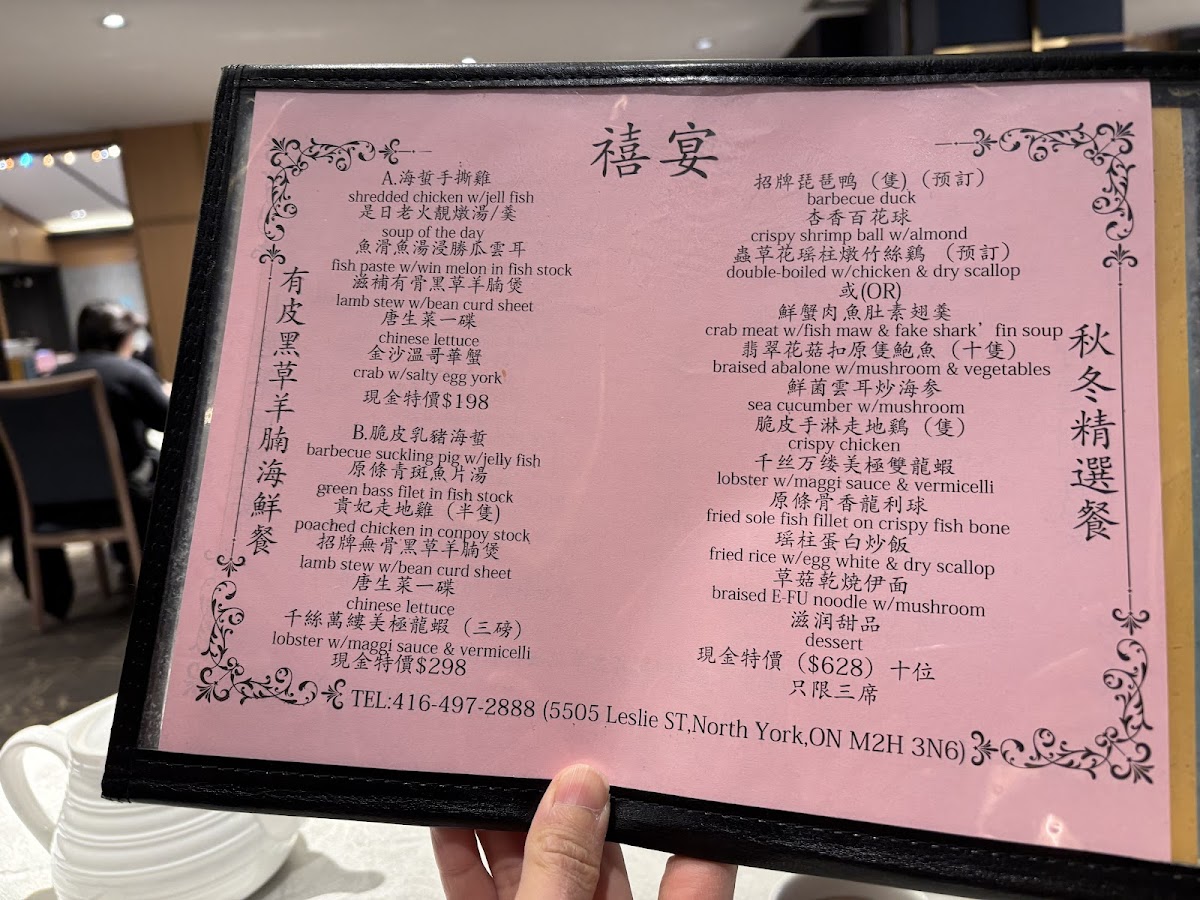 禧宴
有皮黑草羊腩海鮮餐
A.海蜇手撕雞
shredded chicken w/jell fish
是日老火靚燉湯/羹
soup of the day
魚滑魚湯浸勝瓜雲耳
fish paste w/win melon in fish stock
滋補有骨黑草羊腩煲
lamb stew w/bean curd sheet
唐生菜一碟
chinese lettuce
金沙溫哥華蟹
crab w/salty egg york
現金特價$198
B.脆皮乳豬海蜇
barbecue suckling pig w/jelly fish
原條青斑魚片湯
green bass filet in fish stock
貴妃走地雞（半隻）
poached chicken in conpoy stock
招牌無骨黑草羊腩煲
lamb stew w/bean curd sheet
唐生菜一碟
chinese lettuce
千絲萬縷美極龍蝦（三磅）
lobster w/maggi sauce & vermicelli
現金特價$298
招牌琵琶鸭（隻）（预訂）
barbecue duck
杏香百花球
crispy shrimp ball w/almond
蟲草花瑶柱燉竹絲鷄（预訂）
double-boiled w/chicken & dry scallop
或(OR)
鮮蟹肉魚肚素翅羹
crab meat w/fish maw & fake shark’ fin soup
翡翠花菇扣原隻鮑魚（十隻）
braised abalone w/mushroom & vegetables
鮮菌雲耳炒海参
sea cucumber w/mushroom
脆皮手淋走地鷄（隻）
crispy chicken
千丝万缕美極雙龍蝦
lobster w/maggi sauce & vermicelli
原條骨香龍利球
fried sole fish fillet on crispy fish bone
瑶柱蛋白炒飯
fried rice w/egg white & dry scallop
草菇乾燒伊面
braised E-FU noodle w/mushroom
滋润甜品
dessert
現金特價（$628）十位
只限三席
秋冬精選餐
TEL:416-497-2888 (5505 Leslie ST,North York,ON M2H 3N6)